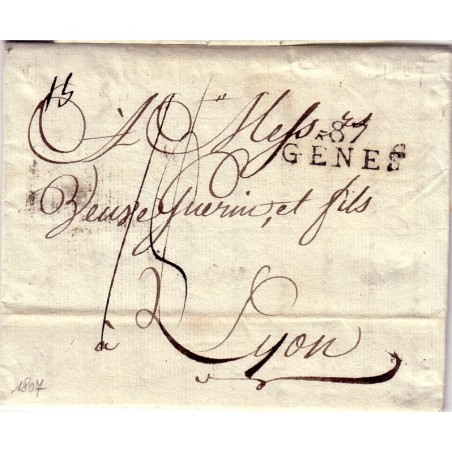 A Mess rs
87
GENES
Veuve Guerin, et fils
à Lyon
1807